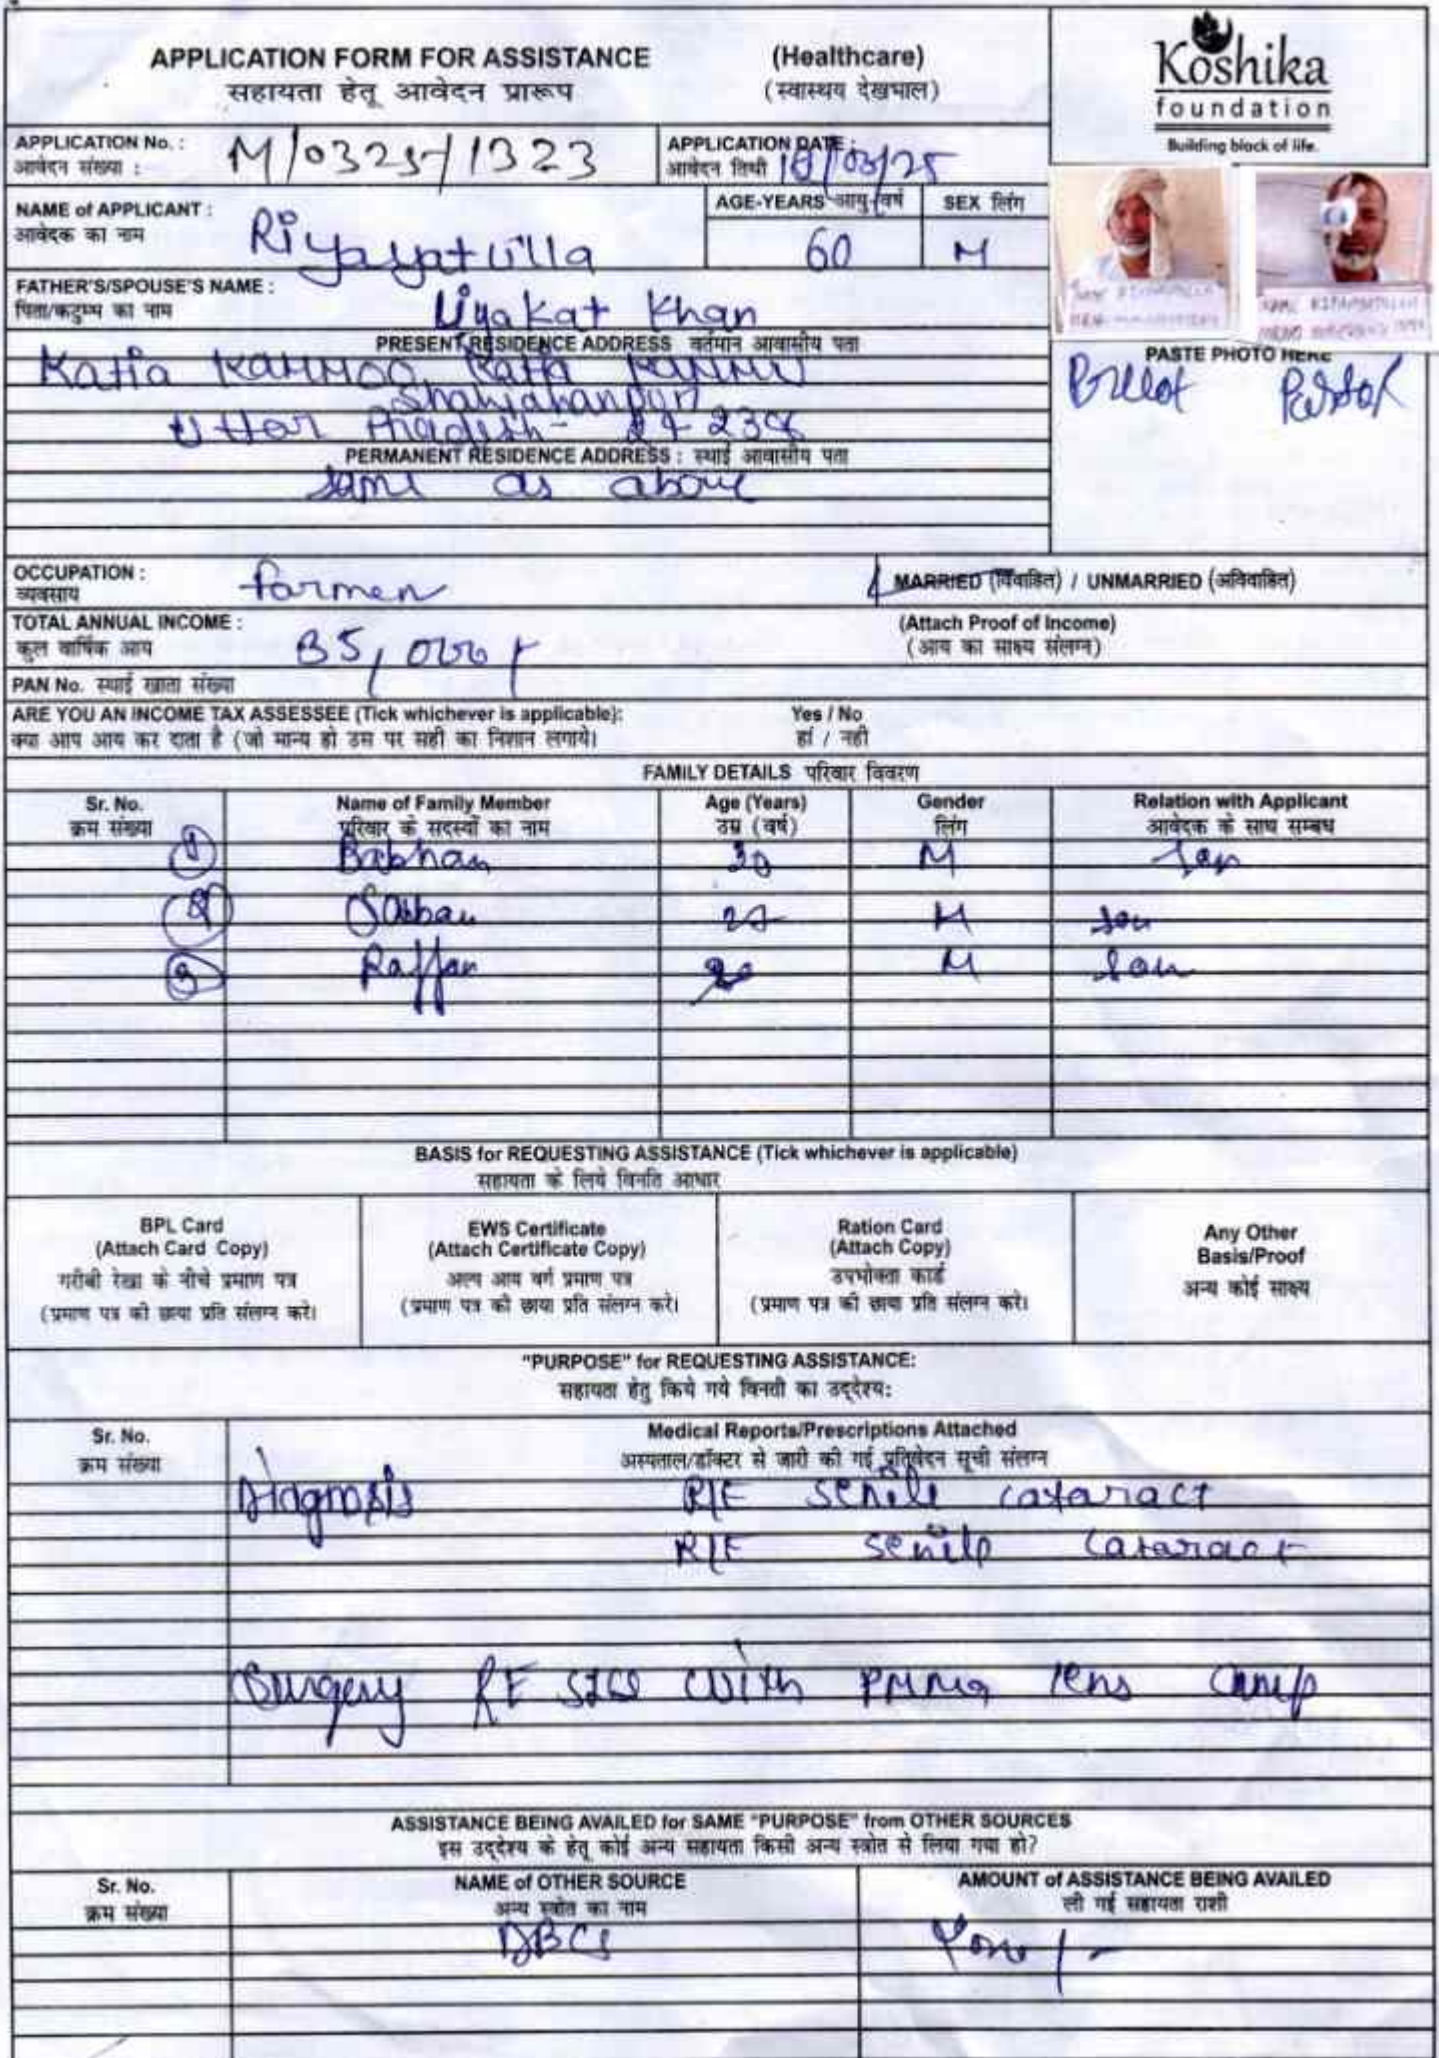 APPLICATION FORM FOR ASSISTANCE (Healthcare)
सहायता हेतू आवेदन प्रारूप (स्वास्थय देखभाल)
Koshika
foundation
Building block of life.
APPLICATION No. : M/0325/1323
आवेदन संख्या :
APPLICATION DATE :
आवेदन तिथी /03/25
NAME of APPLICANT : Riyayatulla
आवेदक का नाम
AGE-YEARS आयु-वर्ष 60
SEX लिंग M
FATHER'S/SPOUSE'S NAME : Liyakat Khan
पिता/कटुम्ब का नाम
PRESENT RESIDENCE ADDRESS वर्तमान आवासीय पता
Katia Kammoo Katia Kammu
Shahjahanpur
Uttar Pradesh-
PERMANENT RESIDENCE ADDRESS : स्थाई आवासीय पता
same as above
PASTE PHOTO HERE
OCCUPATION : Farmer
व्यवसाय
MARRIED (विवाहित) / UNMARRIED (अविवाहित)
TOTAL ANNUAL INCOME : 35,000/
कुल वार्षिक आय
(Attach Proof of Income)
(आय का साक्ष्य संलग्न)
PAN No. स्थाई खाता संख्या
ARE YOU AN INCOME TAX ASSESSEE (Tick whichever is applicable): Yes / No
क्या आप आय कर दाता है (जो मान्य हो उस पर सही का निशान लगाये। हां / नही
FAMILY DETAILS परिवार विवरण
Sr. No. Name of Family Member Age (Years) Gender Relation with Applicant
क्रम संख्या परिवार के सदस्यों का नाम उम्र (वर्ष) लिंग आवेदक के साथ सम्बध
1 Babhan 30 M Son
2 Sabhan M son
3 Raffan M Son
BASIS for REQUESTING ASSISTANCE (Tick whichever is applicable)
सहायता के लिये विनति आधार
BPL Card
(Attach Card Copy)
गरीबी रेखा के नीचे प्रमाण पत्र
(प्रमाण पत्र की छाया प्रति संलग्न करे।
EWS Certificate
(Attach Certificate Copy)
अल्प आय वर्ग प्रमाण पत्र
(प्रमाण पत्र की छाया प्रति संलग्न करे।
Ration Card
(Attach Copy)
उपभोक्ता कार्ड
(प्रमाण पत्र की छाया प्रति संलग्न करे।
Any Other
Basis/Proof
अन्य कोई साक्ष्य
"PURPOSE" for REQUESTING ASSISTANCE:
सहायता हेतु किये गये विनती का उद्देश्य:
Sr. No. Medical Reports/Prescriptions Attached
क्रम संख्या अस्पताल/डॉक्टर से जारी की गई प्रतिवेदन सूची संलग्न
Diagnosis R/E senile cataract
R/E senile cataract
Surgery RE SICS with PMMA lens
ASSISTANCE BEING AVAILED for SAME "PURPOSE" from OTHER SOURCES
इस उद्देश्य के हेतू कोई अन्य सहायता किसी अन्य स्त्रोत से लिया गया हो?
Sr. No. NAME of OTHER SOURCE AMOUNT of ASSISTANCE BEING AVAILED
क्रम संख्या अन्य स्त्रोत का नाम ली गई सहायता राशी
DBCS